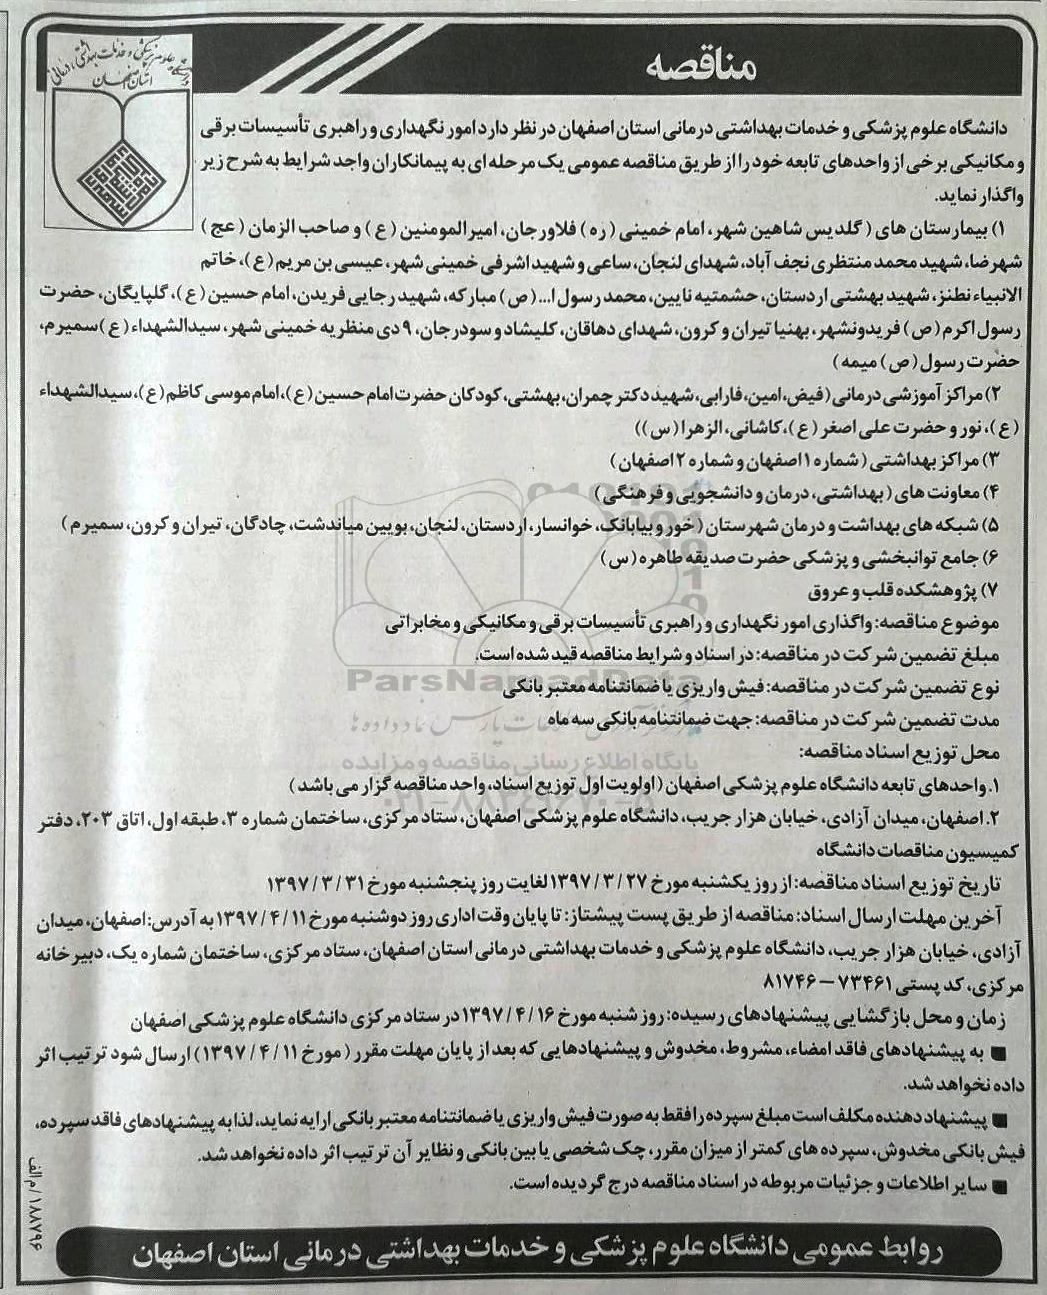 دانشگاه علوم پزشکی و خدمات بهداشتی، درمانی
استان اصفهان
مناقصه
دانشگاه علوم پزشکی و خدمات بهداشتی درمانی استان اصفهان در نظر دارد امور نگهداری و راهبری تأسیسات برقی
و مکانیکی برخی از واحدهای تابعه خود را از طریق مناقصه عمومی یک مرحله ای به پیمانکاران واجد شرایط به شرح زیر
واگذار نماید.
۱) بیمارستان های (گلدیس شاهین شهر، امام خمینی (ره) فلاورجان، امیرالمومنین (ع) و صاحب الزمان (عج)
شهرضا، شهید محمد منتظری نجف آباد، شهدای لنجان، ساعی و شهید اشرفی خمینی شهر، عیسی بن مریم (ع)، خاتم
الانبیاء نطنز، شهید بهشتی اردستان، حشمتیه نایین، محمد رسول ا...(ص) مبارکه، شهید رجایی فریدن، امام حسین (ع)، گلپایگان، حضرت
رسول اکرم (ص) فریدونشهر، بهنیا تیران و کرون، شهدای دهاقان، کلیشاد و سودرجان، ۹ دی منظریه خمینی شهر، سیدالشهداء (ع) سمیرم،
حضرت رسول (ص) میمه)
۲) مراکز آموزشی درمانی (فیض، امین، فارابی، شهید دکتر چمران، بهشتی، کودکان حضرت امام حسین (ع)، امام موسی کاظم (ع)، سیدالشهداء
(ع)، نور و حضرت علی اصغر (ع)، کاشانی، الزهرا (س))
۳) مراکز بهداشتی (شماره ۱ اصفهان و شماره ۲ اصفهان)
۴) معاونت های (بهداشتی، درمان و دانشجویی و فرهنگی)
۵) شبکه های بهداشت و درمان شهرستان (خور و بیابانک، خوانسار، اردستان، لنجان، بویین میاندشت، چادگان، تیران و کرون، سمیرم)
۶) جامع توانبخشی و پزشکی حضرت صدیقه طاهره (س)
۷) پژوهشکده قلب و عروق
موضوع مناقصه: واگذاری امور نگهداری و راهبری تأسیسات برقی و مکانیکی و مخابراتی
مبلغ تضمین شرکت در مناقصه: در اسناد و شرایط مناقصه قید شده است.
ParsNamadData
نوع تضمین شرکت در مناقصه: فیش واریزی یا ضمانتنامه معتبر بانکی
مدت تضمین شرکت در مناقصه: جهت ضمانتنامه بانکی سه ماه
محل توزیع اسناد مناقصه:
پایگاه اطلاع رسانی مناقصه و مزایده
۱. واحدهای تابعه دانشگاه علوم پزشکی اصفهان (اولویت اول توزیع اسناد، واحد مناقصه گزار می باشد)
۲. اصفهان، میدان آزادی، خیابان هزار جریب، دانشگاه علوم پزشکی اصفهان، ستاد مرکزی، ساختمان شماره ۳، طبقه اول، اتاق ۲۰۳، دفتر
کمیسیون مناقصات دانشگاه
تاریخ توزیع اسناد مناقصه: از روز یکشنبه مورخ ۱۳۹۷/۳/۲۷ لغایت روز پنجشنبه مورخ ۱۳۹۷/۳/۳۱
آخرین مهلت ارسال اسناد: مناقصه از طریق پست پیشتاز: تا پایان وقت اداری روز دوشنبه مورخ ۱۳۹۷/۴/۱۱ به آدرس: اصفهان، میدان
آزادی، خیابان هزار جریب، دانشگاه علوم پزشکی و خدمات بهداشتی درمانی استان اصفهان، ستاد مرکزی، ساختمان شماره یک، دبیرخانه
مرکزی، کد پستی ۷۳۴۶۱-۸۱۷۴۶
زمان و محل بازگشایی پیشنهادهای رسیده: روز شنبه مورخ ۱۳۹۷/۴/۱۶ در ستاد مرکزی دانشگاه علوم پزشکی اصفهان
■ به پیشنهادهای فاقد امضاء، مشروط، مخدوش و پیشنهادهایی که بعد از پایان مهلت مقرر (مورخ ۱۳۹۷/۴/۱۱) ارسال شود ترتیب اثر
داده نخواهد شد.
■ پیشنهاد دهنده مکلف است مبلغ سپرده را فقط به صورت فیش واریزی یا ضمانتنامه معتبر بانکی ارایه نماید، لذا به پیشنهادهای فاقد سپرده،
فیش بانکی مخدوش، سپرده های کمتر از میزان مقرر، چک شخصی یا بین بانکی و نظایر آن ترتیب اثر داده نخواهد شد.
■ سایر اطلاعات و جزئیات مربوطه در اسناد مناقصه درج گردیده است.
۱۸۸۷۹۶/م الف
روابط عمومی دانشگاه علوم پزشکی و خدمات بهداشتی درمانی استان اصفهان